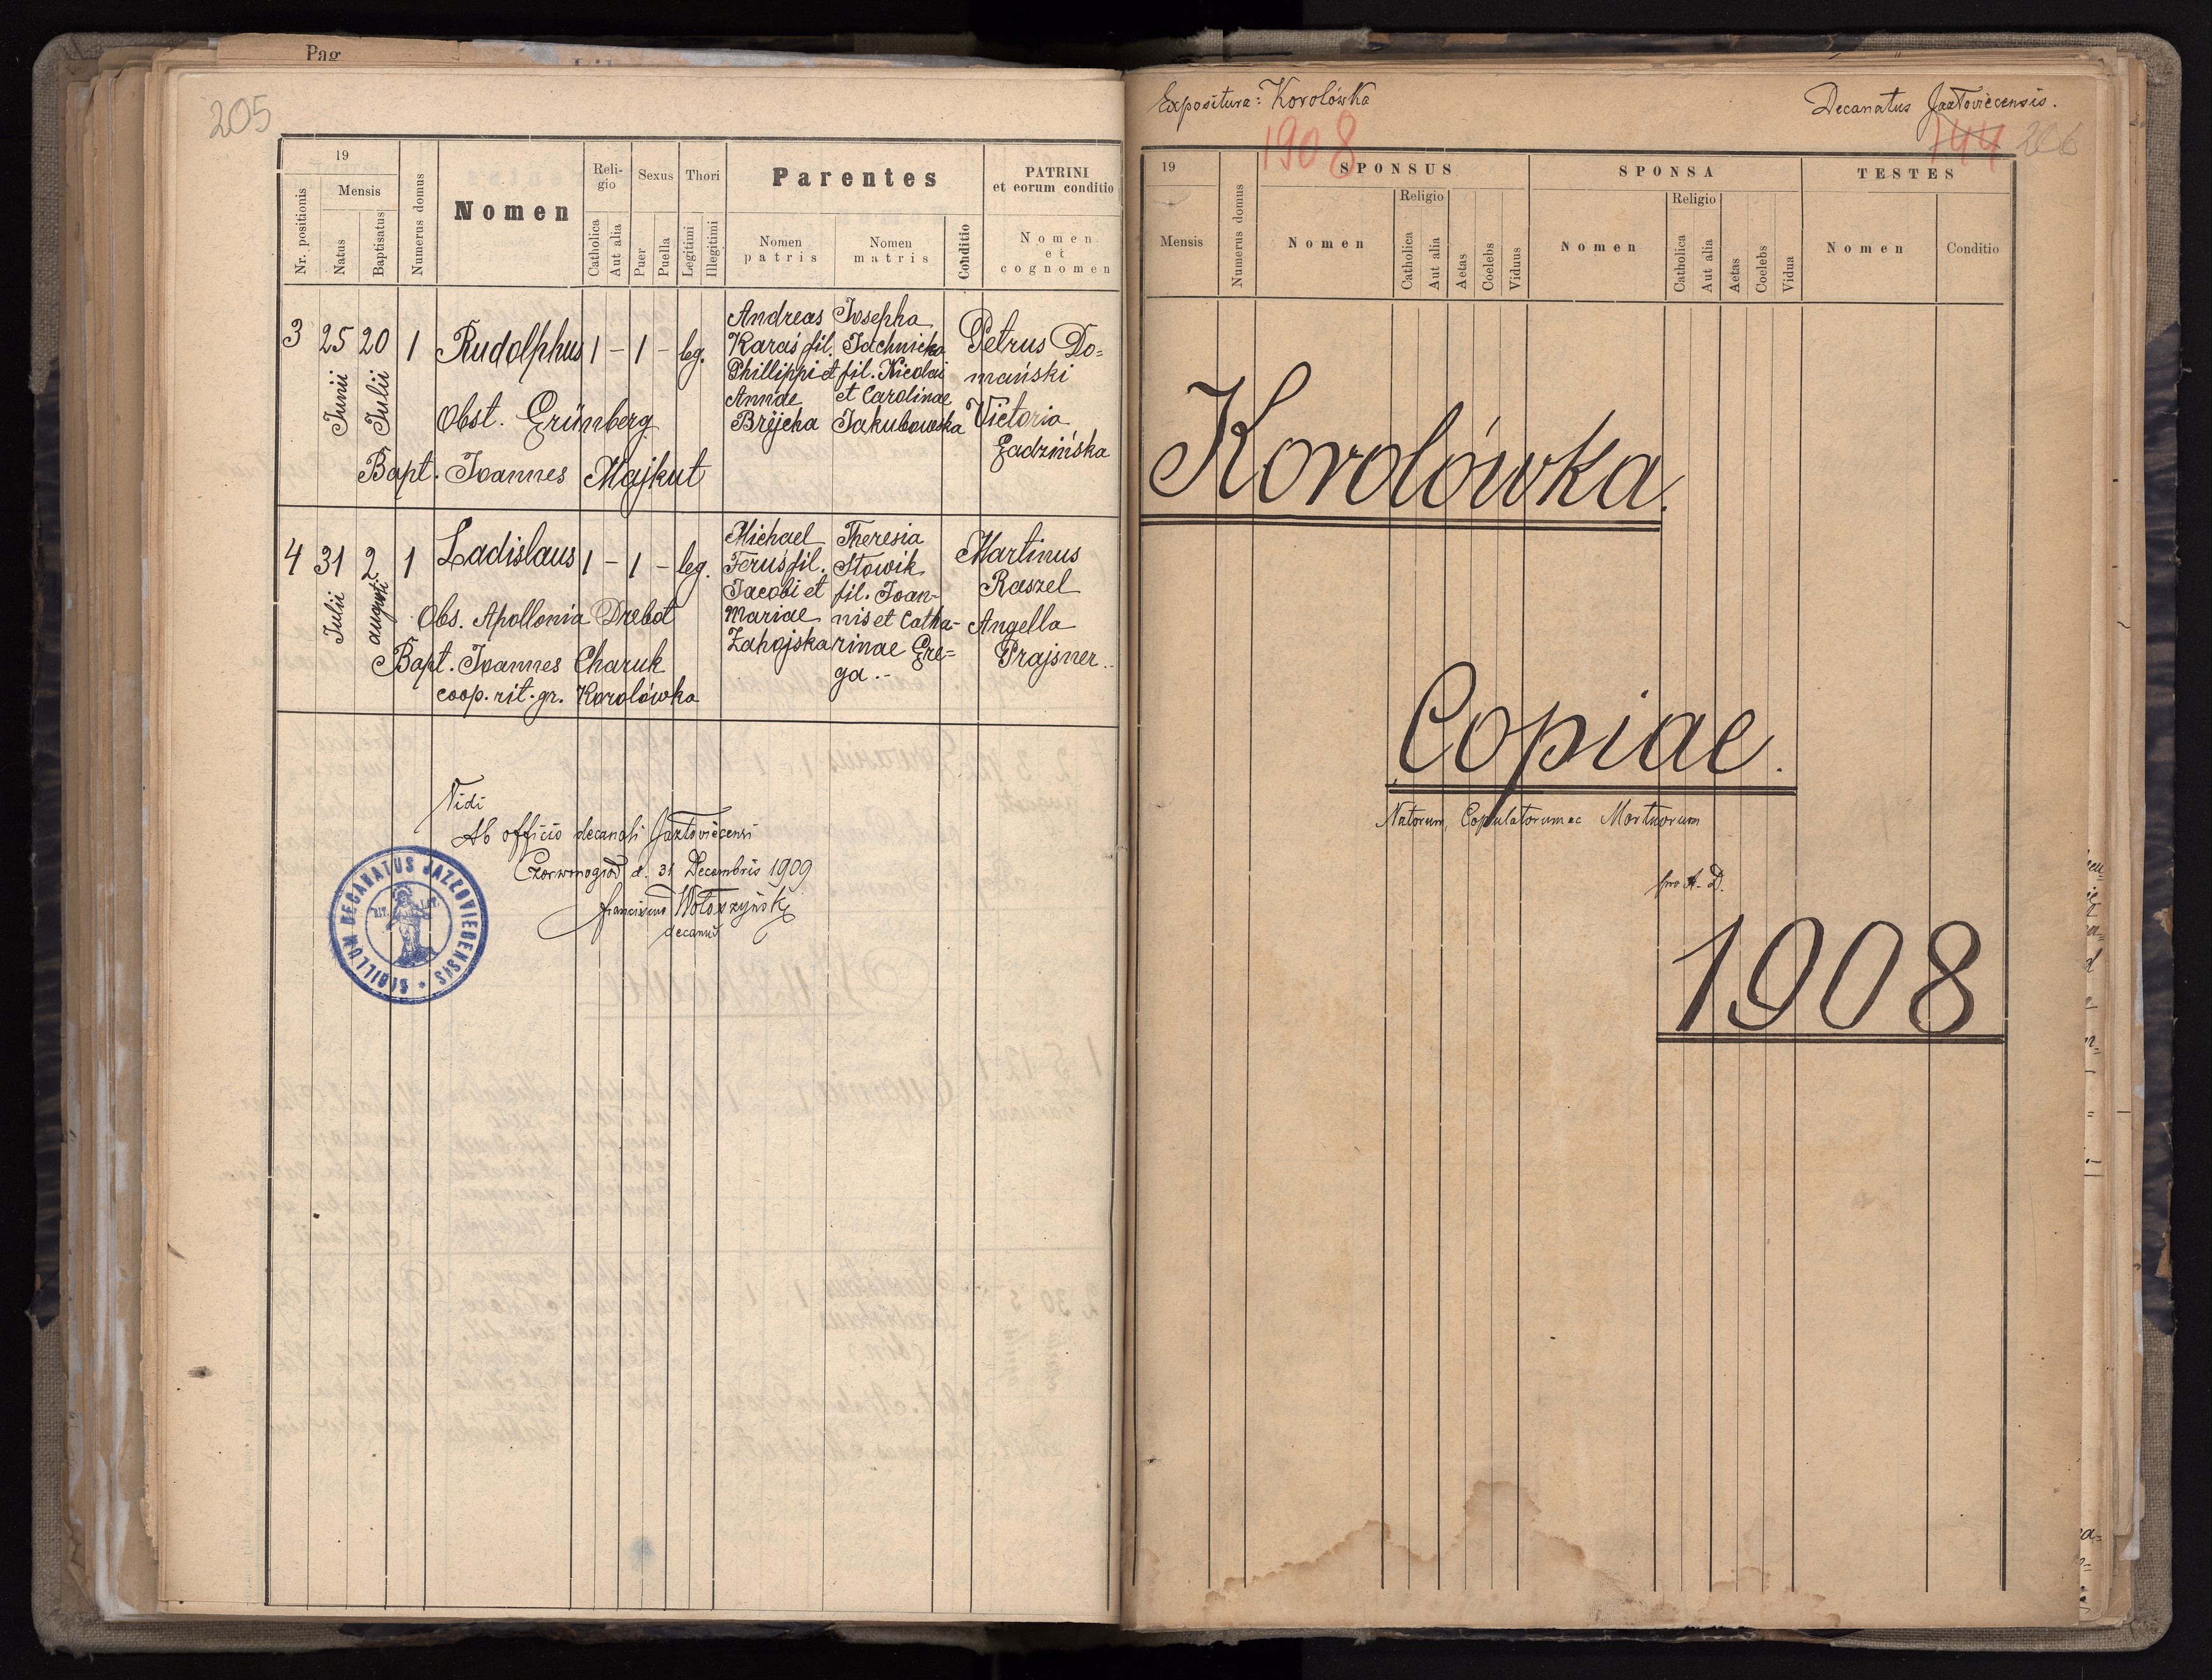 Pag
205
19
Mensis
Nr. positionis
Natus
Baptisatus
Numerus domus
Nomen
Reli-
gio
Catholica
Aut alia
Sexus
Puer
Puella
Thori
Legitimi
Illegitimi
Parentes
Nomen
patris
Nomen
matris
Conditio
PATRINI
et eorum conditio
Nomen
et
cognomen
3 25 Junii 20 Julii 1 Rudolphus 1 - 1 - leg.
Obst. Grünberg
Bapt. Joannes Majkut
Andreas
Karaś fil.
Phillippi et
Annae
Bryjcha
Josepha
Jachnicka
fil. Nicolai
et Carolinae
Jakubowska
Petrus Do=
mański
Victoria
Zadzińska
4 31 Julii 2 augusti 1 Ladislaus 1 - 1 - leg.
Obs. Apollonia Drebot
Bapt. Joannes Charuk
coop. rit. gr. Korolówka
Michael
Feruś fil.
Jacobi et
Mariae
Zahajska
Theresia
Słowik
fil. Joan-
nis et Catha-
rinae Gre=
ga.-
Martinus
Raszel
Angella
Prajsner
Vidi
Ab officio decanali Jazłoviecensi
Czerwonogród d. 31 Decembris 1909
Franciscus Wołoszyński
decanus
SIGILLUM DECANATUS JAZŁOVIECENSIS
RIT. LAT.
Expositura: Korolówka
Decanatus Jazłoviecensis.
1908
744 206
19
Mensis
Numerus domus
SPONSUS
Nomen
Religio
Catholica
Aut alia
Aetas
Coelebs
Viduus
SPONSA
Nomen
Religio
Catholica
Aut alia
Aetas
Coelebs
Vidua
TESTES
Nomen
Conditio
Korolówka.
Copiae.
Natorum, Copulatorum ac Mortuorum
pro A. D.
1908